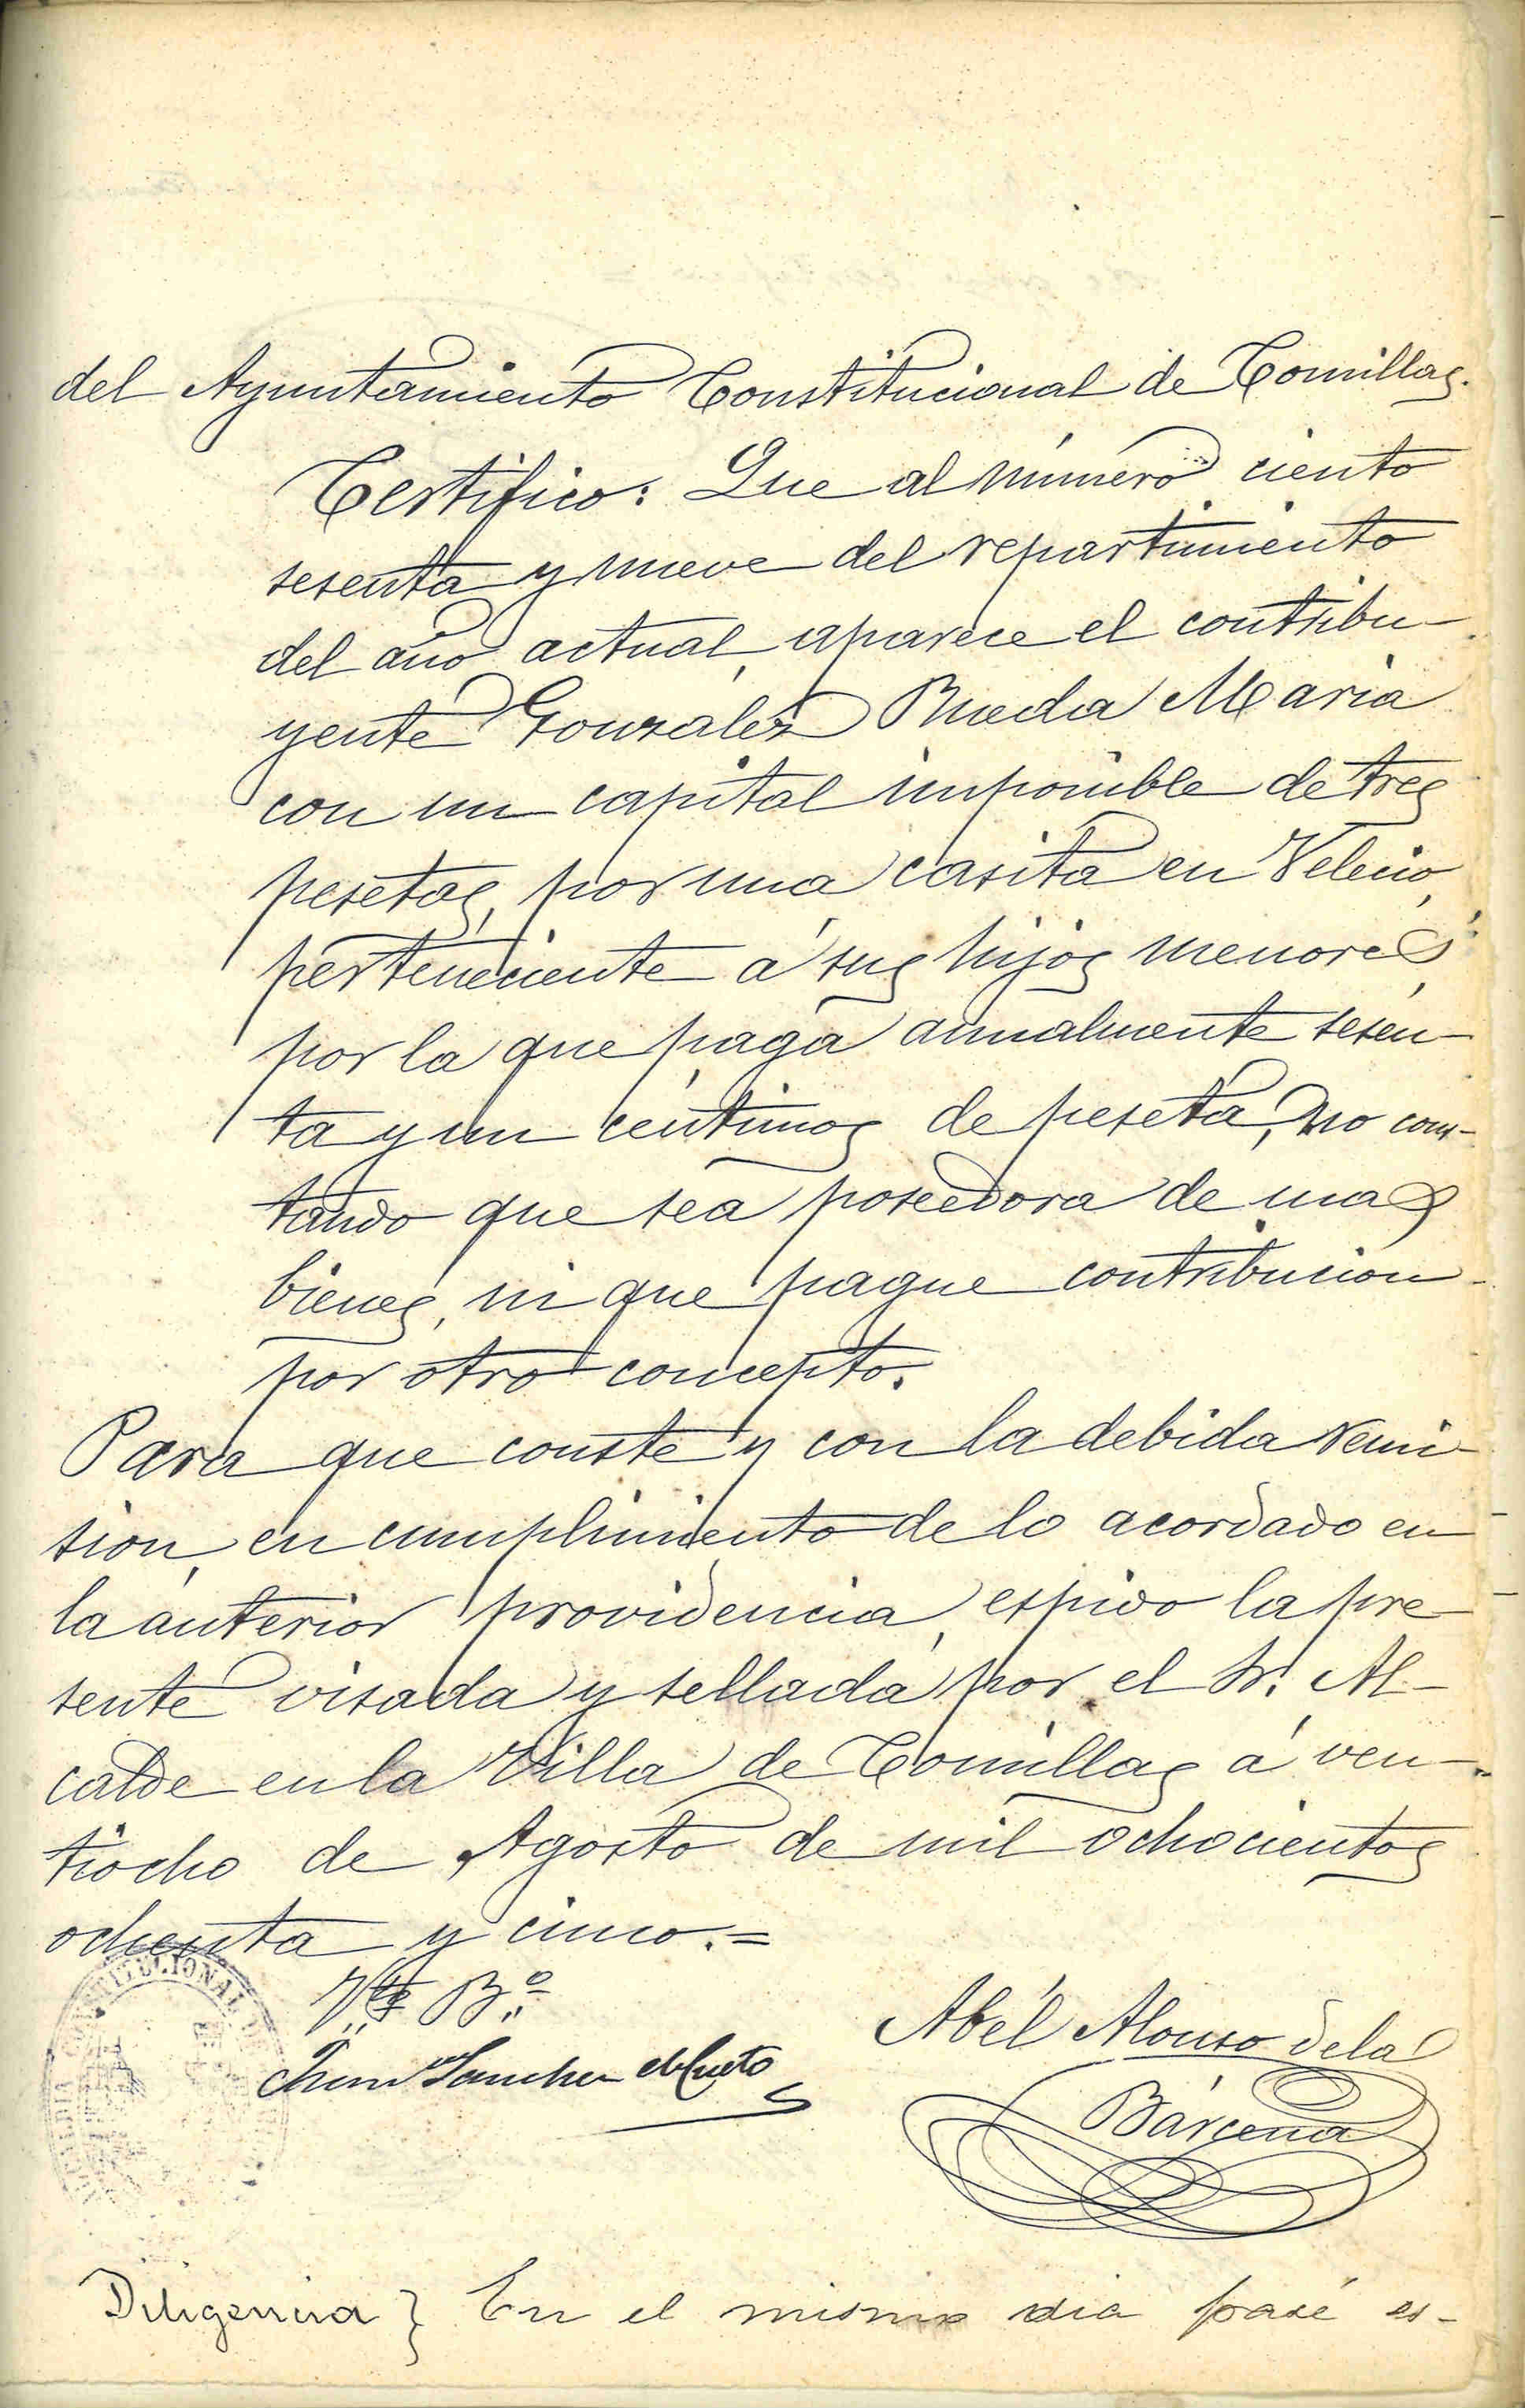 del Ayuntamiento Constitucional de Comillas.
Certifico: Que al número ciento
sesenta y nueve del repartimiento
del año actual, aparece el contribu-
yente Gonzalez Rueda Maria
con un capital imponible de tres
pesetas, por una casita en Velecio,
perteneciente á sus hijos menores,
por la que paga anualmente sesen-
ta y un centimos de peseta, no cons-
tando que sea poseedora de mas
bienes, ni que pague contribucion
por otro concepto.
Para que conste y con la debida remi-
sion, en cumplimiento de lo acordado en
la anterior providencia, espido la pre-
sente visada y sellada por el Sr. Al-
calde en la Villa de Comillas á vein-
tiocho de Agosto de mil ochocientos
ochenta y cinco.=
Vto Bo
Sanchez del Cueto
Abel Alonso de la
Bárcena
CONSTITUCIONAL
Diligencia } En el mismo dia pasé es-